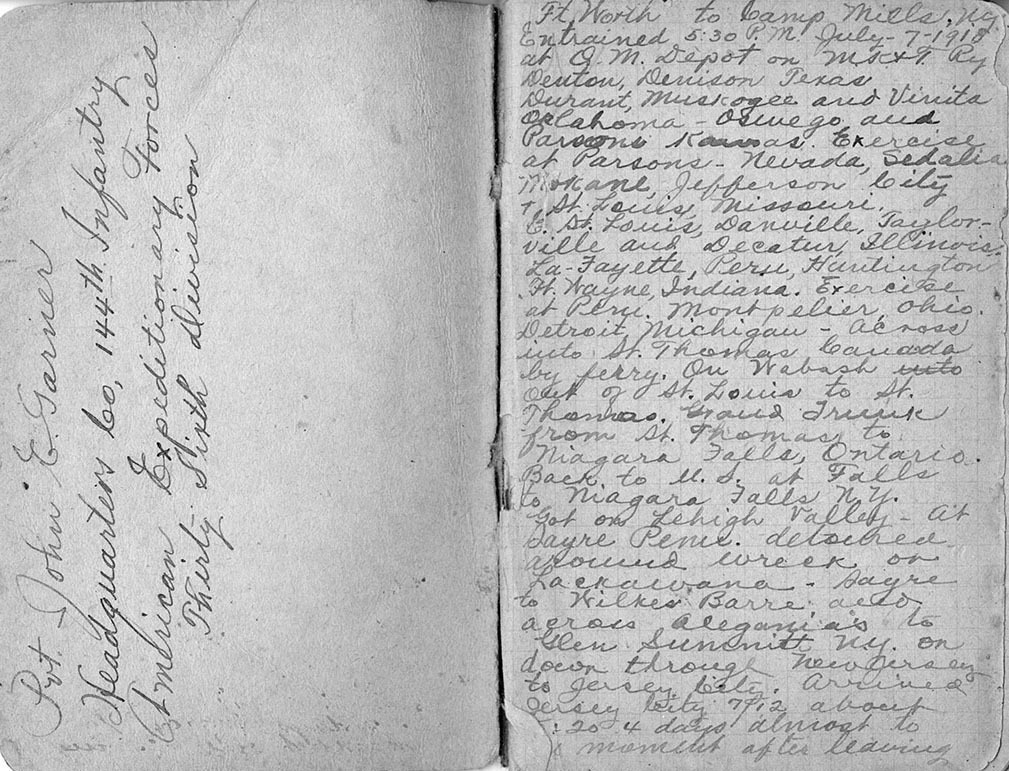 Pvt. John E. Garner
Headquarters Co, 144th Infantry
American Expeditionary Forces
Thirty Sixth Division
Ft Worth to Camp Mills, NY
Entrained 5:30 P.M. July-7-1918
at Q.M. Depot on M.K.&T. Ry
Denton, Denison Texas
Durant, Muskogee and Vinita
Oklahoma - Oswego and
Parsons Kansas. Exercise
at Parsons - Nevada, Sedalia
Mokane, Jefferson City
+, St. Louis, Missouri.
E. St. Louis, Danville, Taylor-
ville and Decatur, Illinois.
La-Fayette, Peru, Huntington
Ft. Wayne, Indiana. Exercise
at Peru. Montpelier, Ohio.
Detroit Michigan - Across
into St. Thomas Canada
by ferry. On Wabash into
out of St. Louis to St.
Thomas. Grand Trunk
from St. Thomas to
Niagara Falls, Ontario.
Back to U.S. at Falls
to Niagara Falls N.Y.
Got on Lehigh Valley - At
Sayre Penn. detoured
around wreck on
Lackawana - Sayre
to Wilkes Barre, and
across Alegania's to
Glen Summitt NY. on
down through New Jersey
to Jersey City. Arrived
Jersey City 7/12 about
:20 4 days almost to
moment after leaving